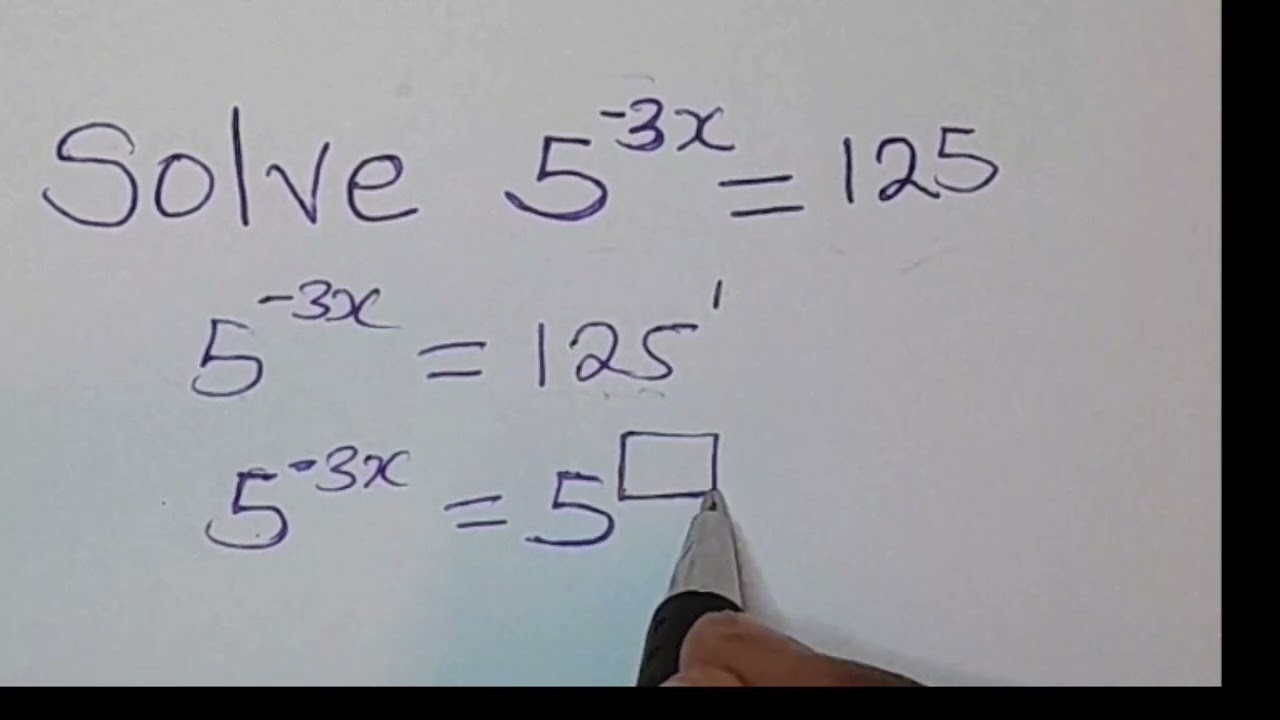 Solve 5⁻³ˣ = 125
5⁻³ˣ = 125¹
5⁻³ˣ = 5^□